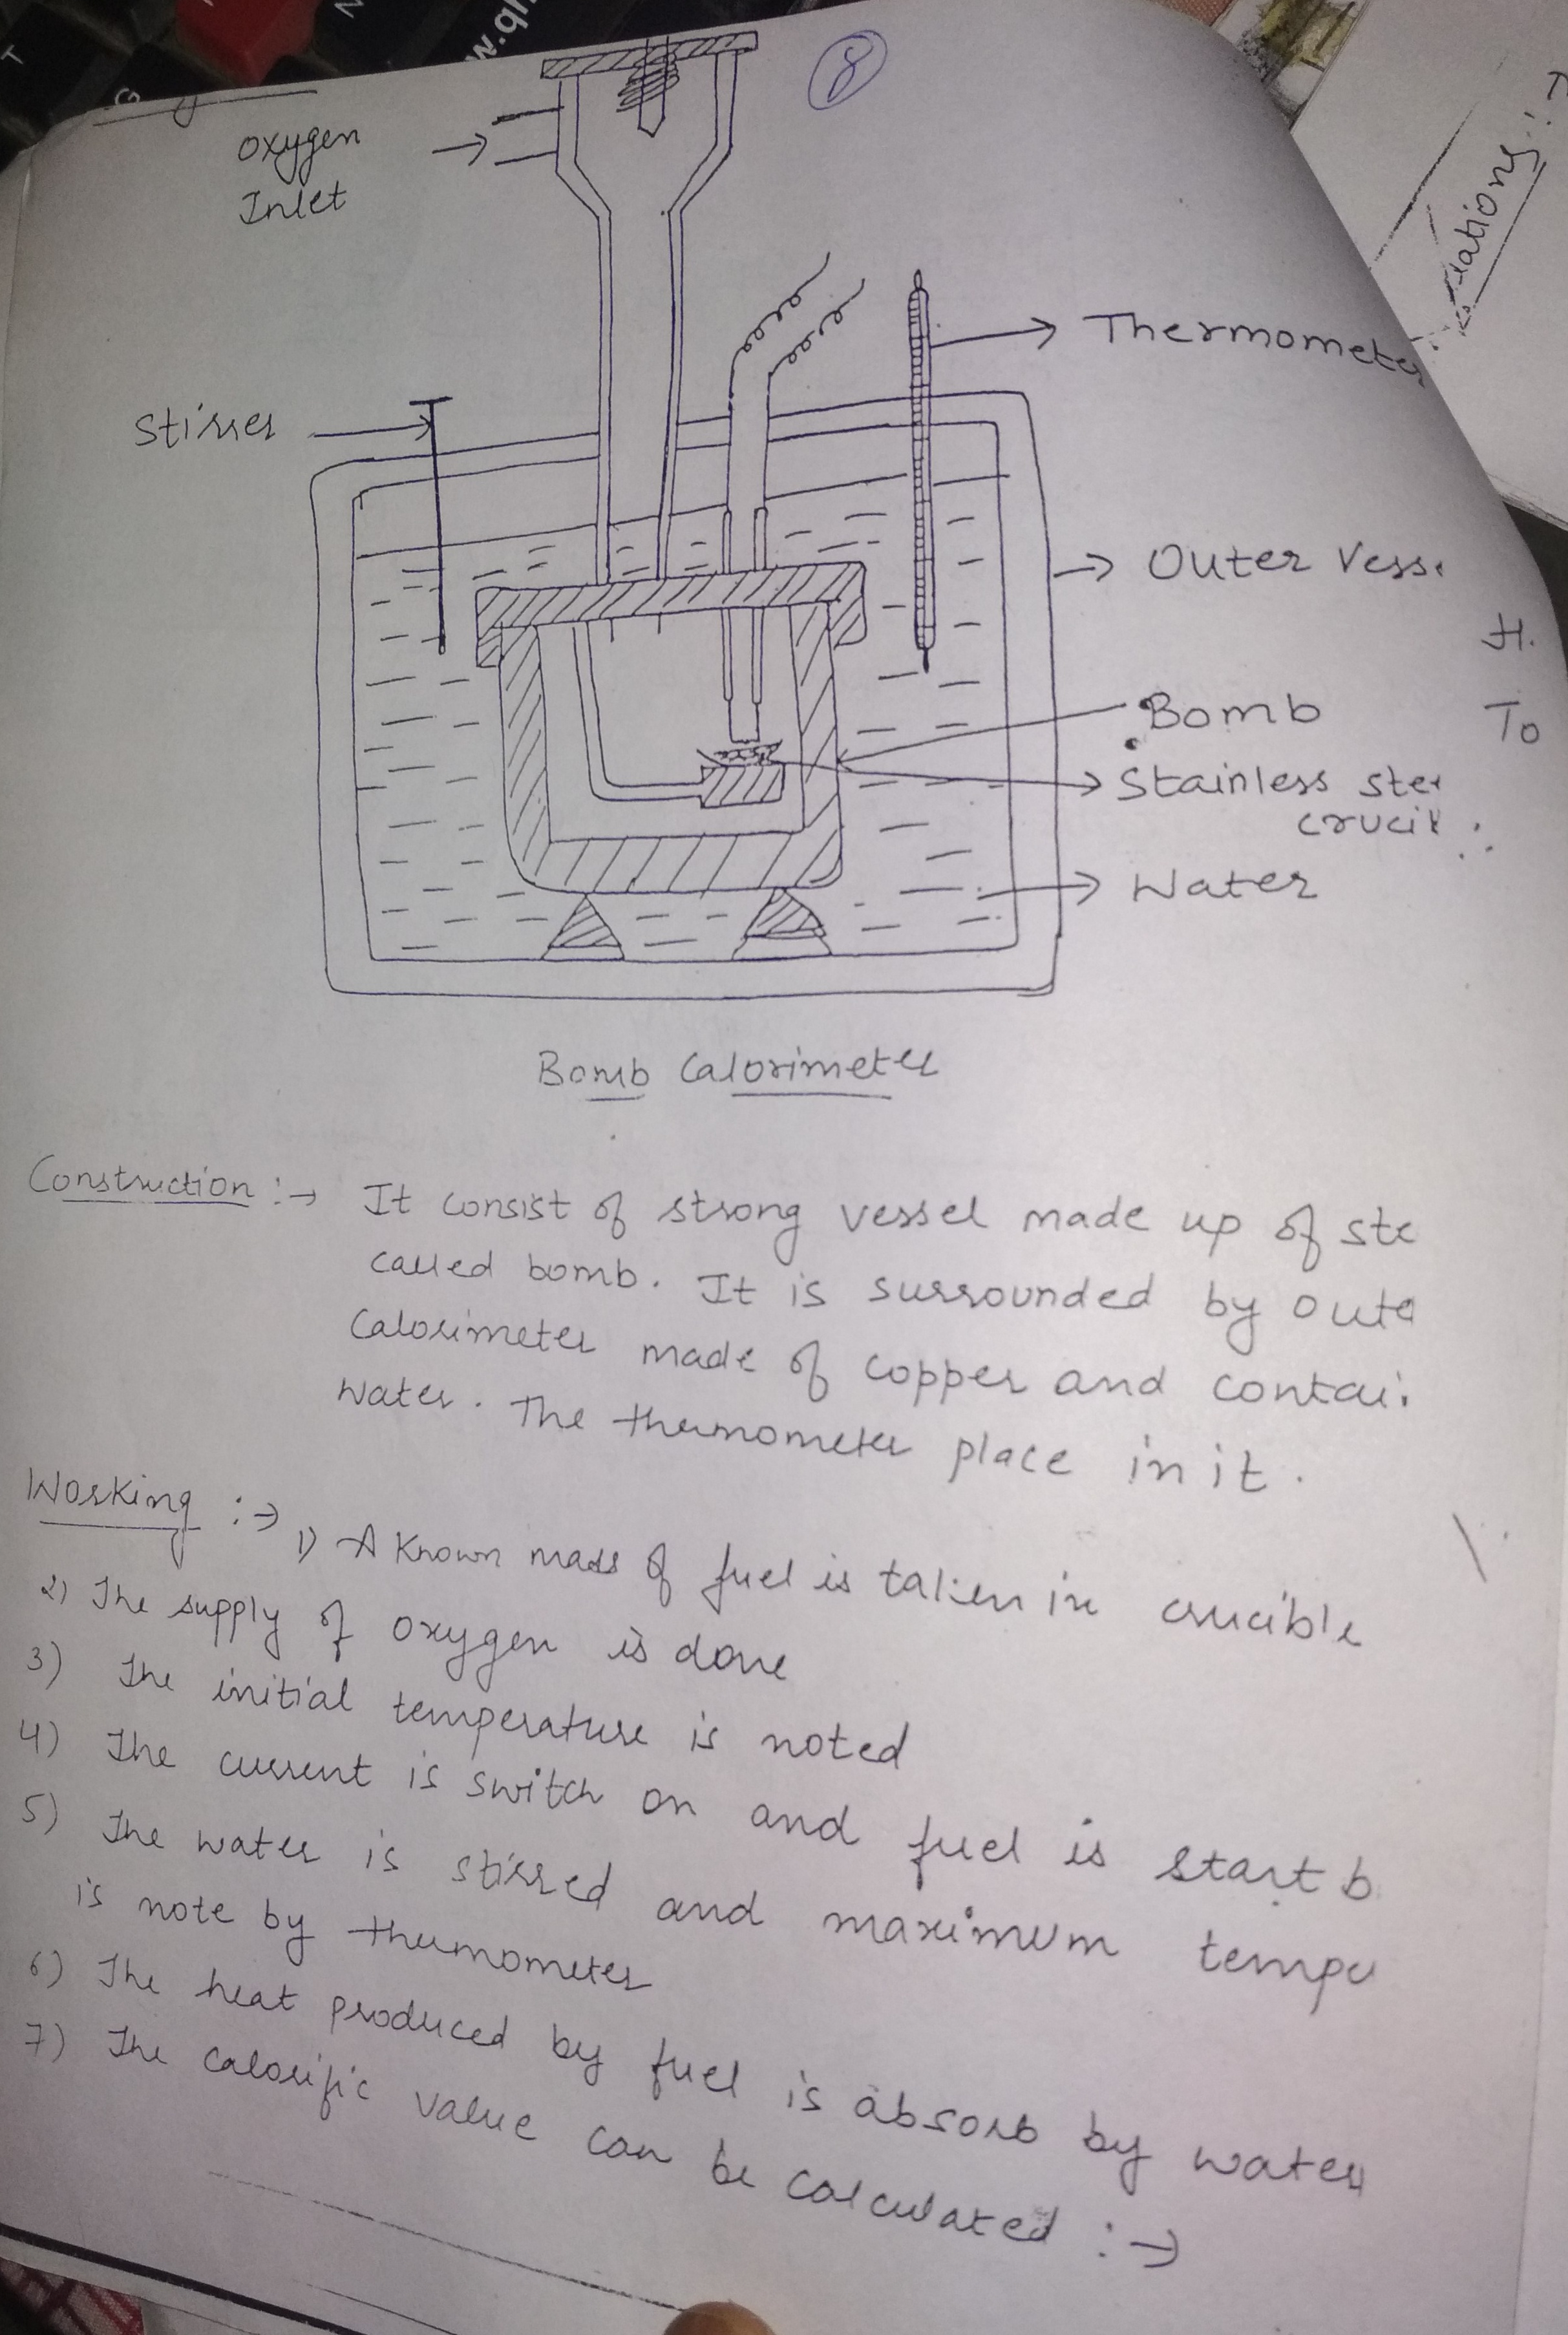 8
Oxygen
Inlet
Thermometer
Stirrer
Outer Vess
Bomb
Stainless stee
crucib
Water
H.
To
ations :
Bomb Calorimeter
Construction :→ It consist of strong vessel made up of ste
called bomb. It is surrounded by oute
Calorimeter made of copper and contai
water. The thermometer place in it.
Working :→ 1) A Known mass of fuel is taken in crucible
2) The supply of oxygen is done
3) The initial temperature is noted
4) The current is switch on and fuel is start b
5) The water is stirred and maximum tempe
is note by thermometer
6) The heat produced by fuel is absorb by water
7) The calorific value can be calculated :→